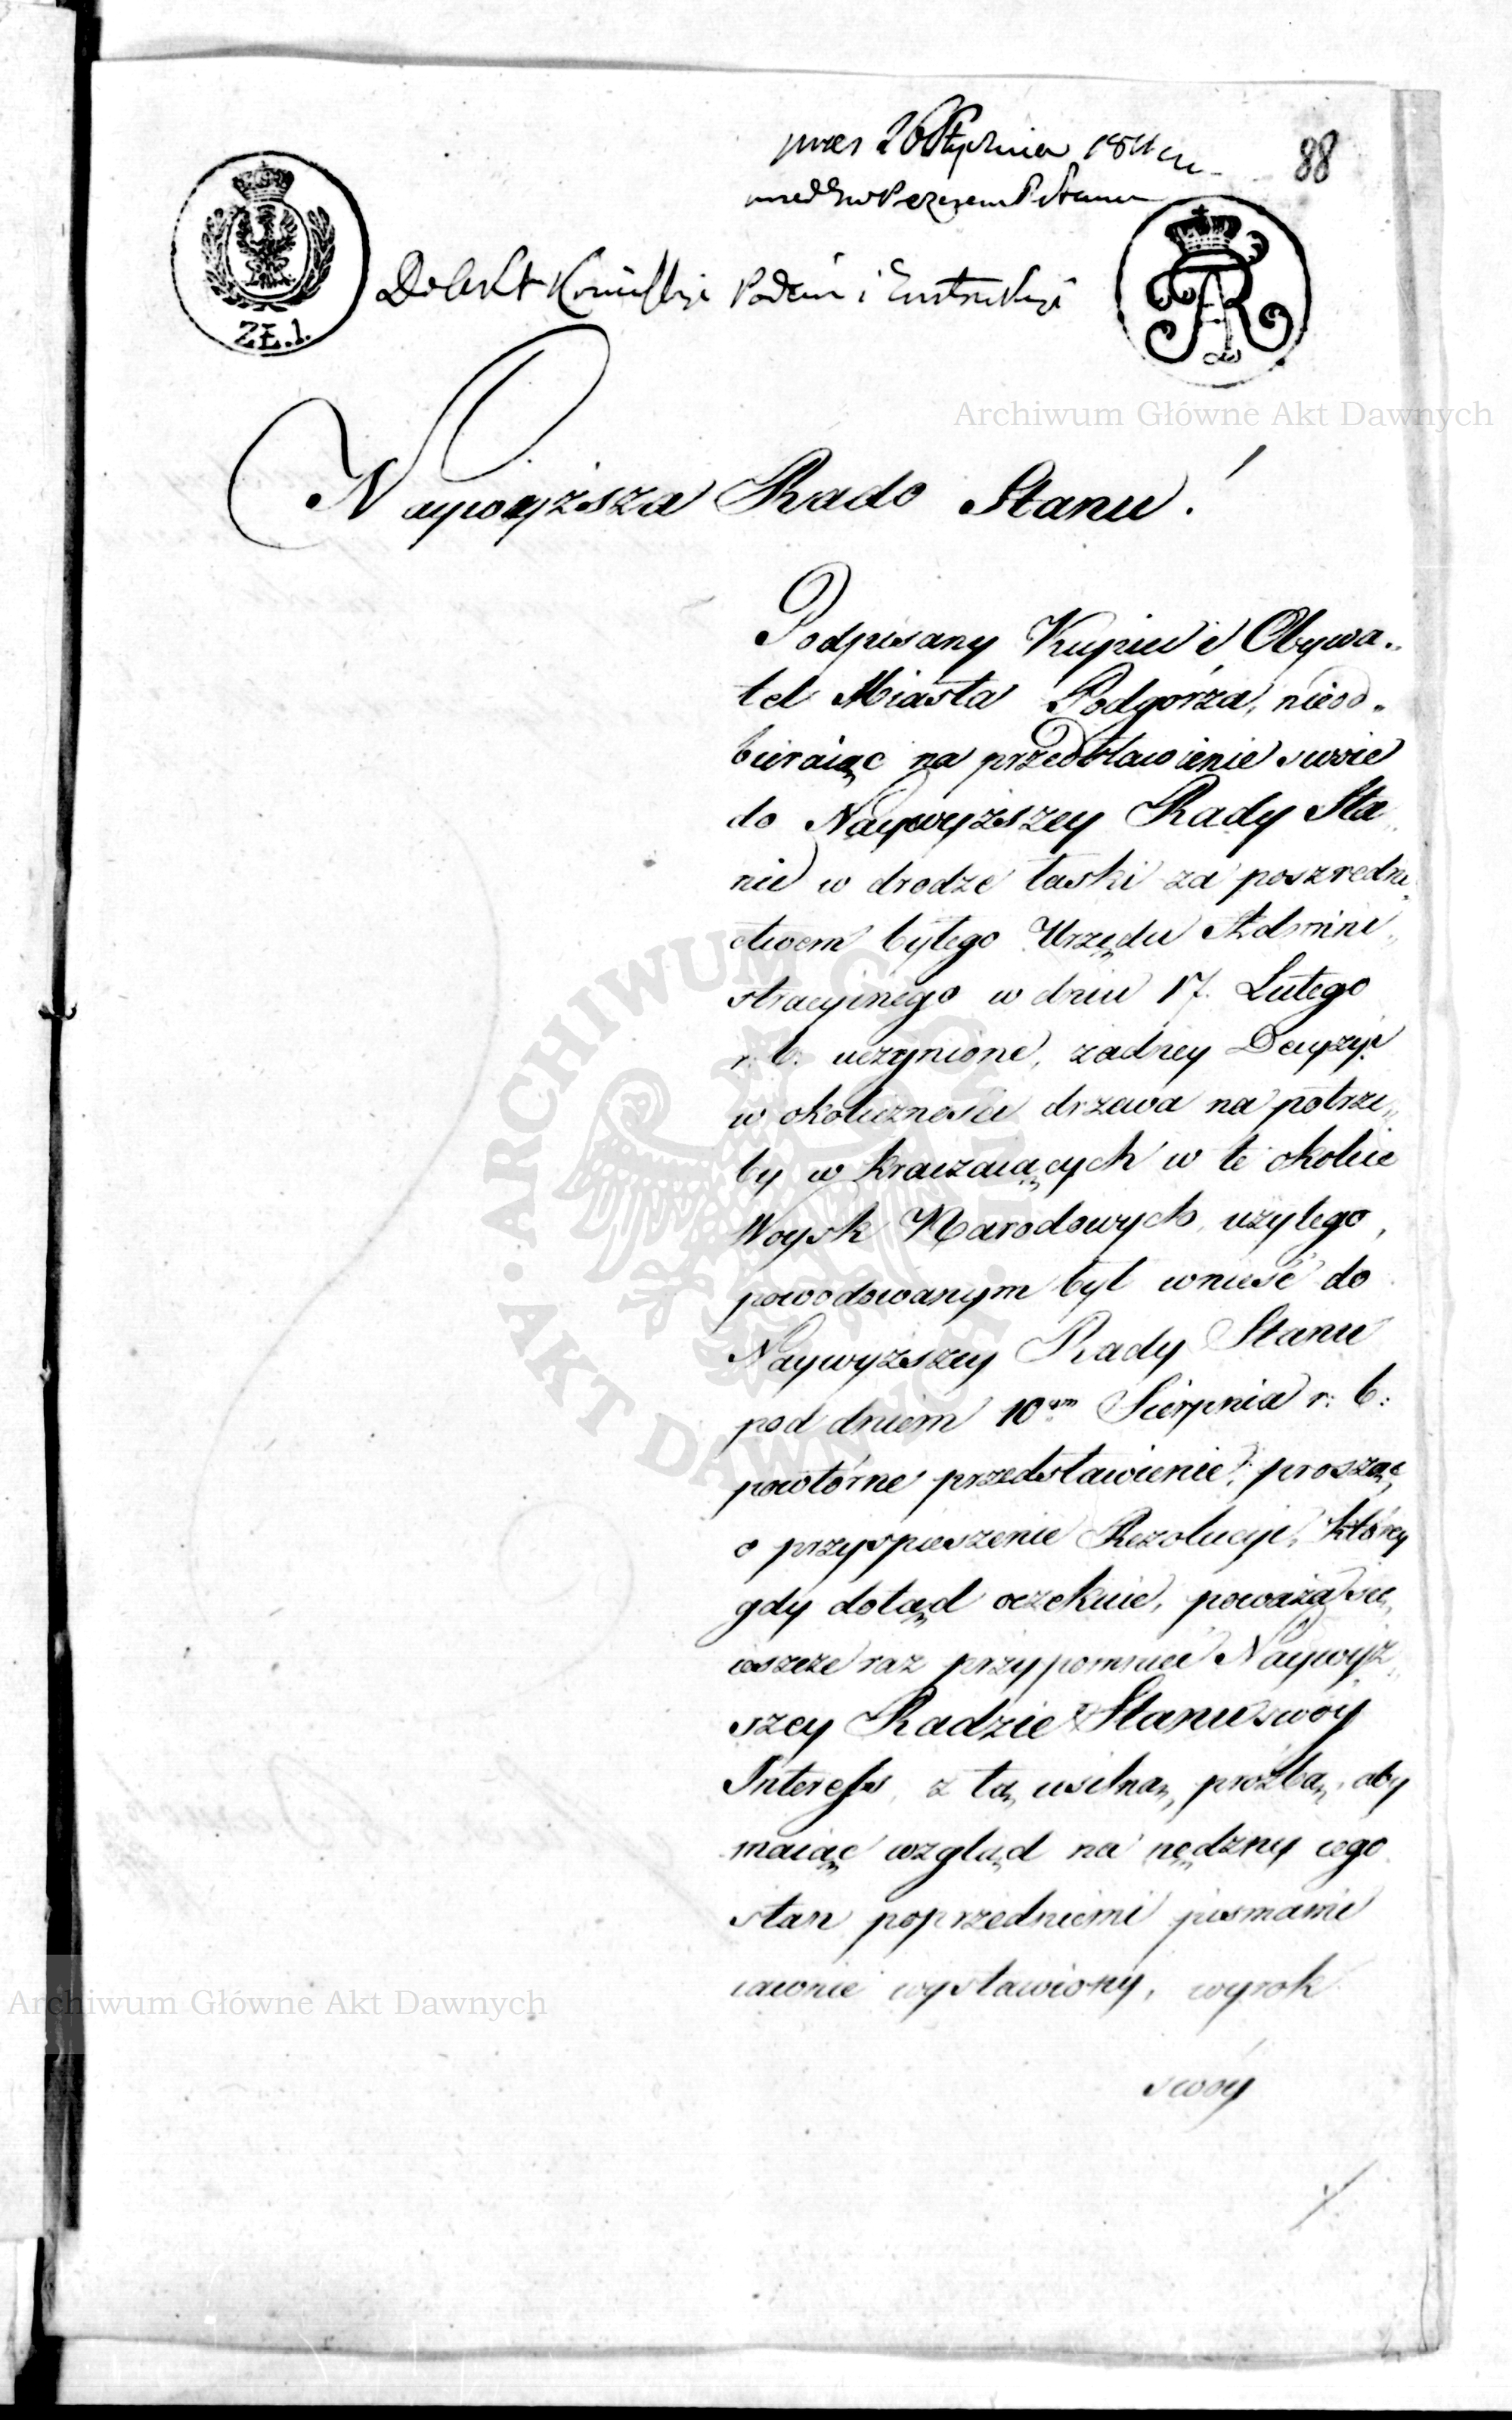 88
ZŁ.1.
Archiwum Główne Akt Dawnych
Naywyższa Rado Stanu!
Podpisany Kupiec i Obywa„
tel Miasta Podgórza, nieod„
bieraiąc na przedstawienie swoie
do Naywyższey Rady Sta„
nu w drodze łaski za poszredni„
ctwem byłego Urzędu Admini„
stracyinego w dniu 17. Lutego
r. b. uczynione, żadney Decyzyi
w okoliczności drzewa na potrze„
by w kraczaiących w te okolice
Woysk Narodowych użytego,
powodowanym był wnieść do
Naywyższey Rady Stanu
pod dniem 10ym Sierpnia r: b:
powtórne przedstawienie, prosząc
o przyspieszenie Rezolucyi, którey
gdy dotąd oczekuie, poważa się
ieszcze raz przypomnieć Naywyż„
szey Radzie Stanu swóy
Interess, z tą usilną prożbą, aby
maiąc wzgląd na nędzny iego
stan poprzedniemi pismami
iawnie wystawiony, wyrok
swóy
ARCHIWUM GŁÓWNE · AKT DAWNYCH ·
Archiwum Główne Akt Dawnych